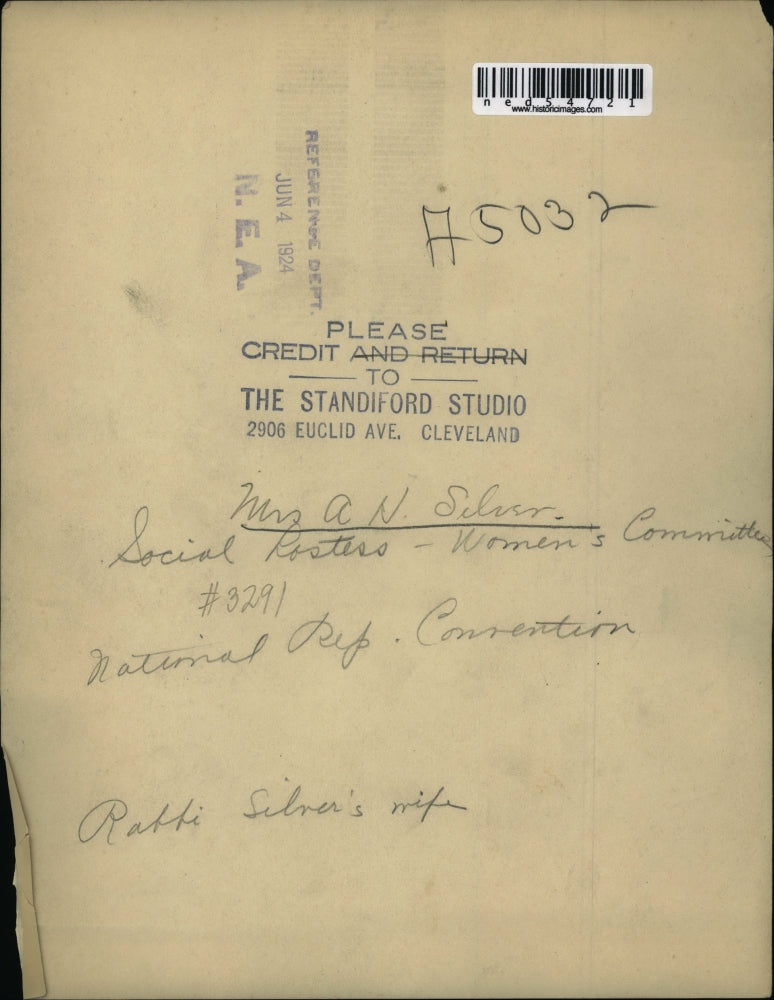 ned54721
www.historicimages.com
REFERENCE DEPT.
JUN 4 1924
N. E. A.
A5032
PLEASE
CREDIT AND RETURN
TO
THE STANDIFORD STUDIO
2906 EUCLID AVE. CLEVELAND
Mrs A H. Silver.
Social Hostess - Women's Committee
#3291
National Rep. Convention
Rabbi Silver's wife